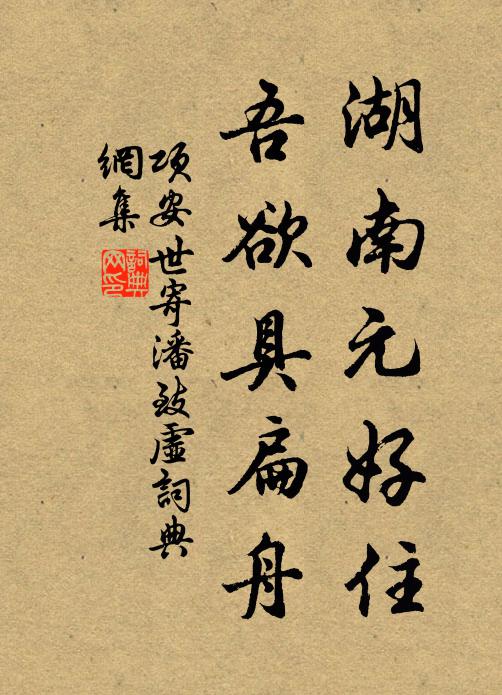 湖南元好住
吾欲具扁舟
項安世寄潘致虛詞典
網集
詞典
网印